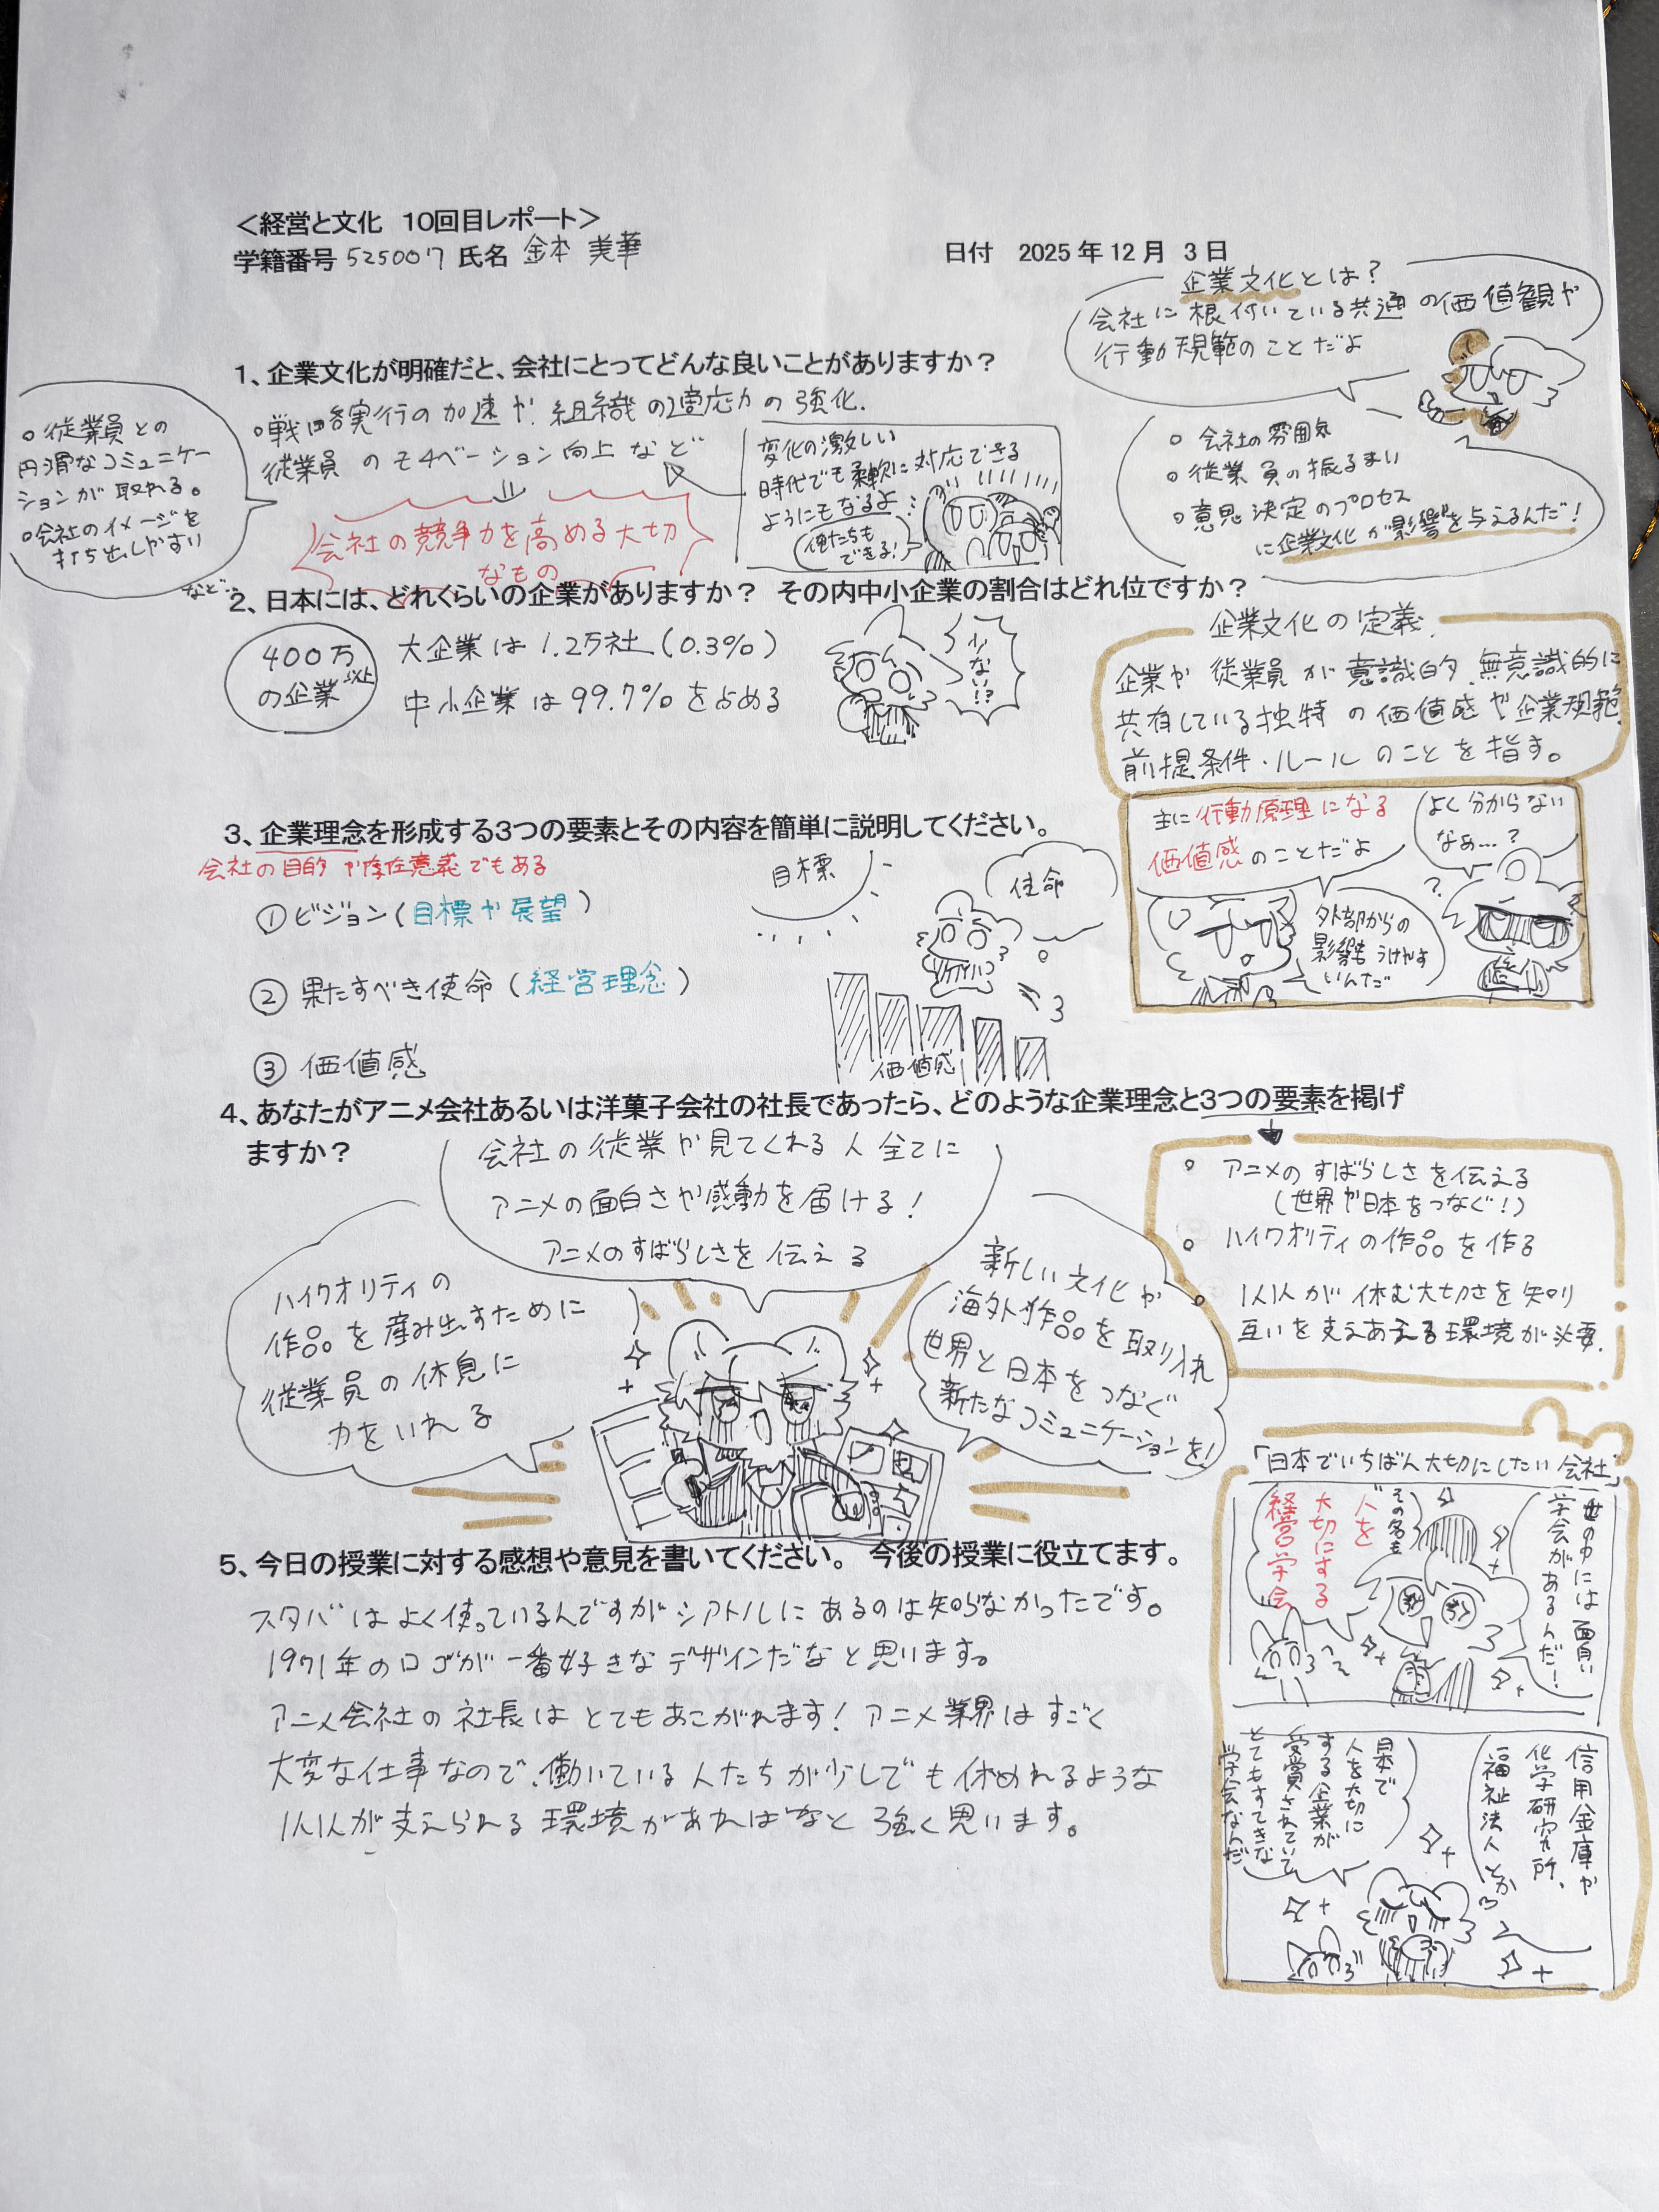 ＜経営と文化　10回目レポート＞
学籍番号 525007 氏名 金本 美華
日付　2025年12月 3日
企業文化とは？
会社に根付いている共通の価値観や
行動規範のことだよ
。会社の雰囲気
。従業員の振るまい
。意思決定のプロセス
に企業文化が影響を与えるんだ！
1、企業文化が明確だと、会社にとってどんな良いことがありますか？
。戦略実行の加速や組織の適応力の強化.
従業員のモチベーション向上など
。従業員との
円滑なコミュニケー
ションが取れる。
。会社のイメージを
打ち出しやすい
など..
会社の競争力を高める大切
なもの
変化の激しい
時代でも柔軟に対応できる
ようにもなるよ
俺たちも
できる！
2、日本には、どれくらいの企業がありますか？　その内中小企業の割合はどれ位ですか？
400万
以上
の企業
大企業は1.2万社（0.3%）
中小企業は99.7%を占める
少ない!?
企業文化の定義
企業や従業員が意識的、無意識的に
共有している独特の価値感や企業規範、
前提条件・ルールのことを指す。
主に行動原理になる
価値感のことだよ
よく分からない
なぁ…？
外部からの
影響もうけやす
いんだ
3、企業理念を形成する3つの要素とその内容を簡単に説明してください。
会社の目的や存在意義でもある
①ビジョン（目標や展望）
②果たすべき使命（経営理念）
③価値感
目標
使命
価値感
4、あなたがアニメ会社あるいは洋菓子会社の社長であったら、どのような企業理念と3つの要素を掲げ
ますか？
会社の従業や見てくれる人全てに
アニメの面白さや感動を届ける！
アニメのすばらしさを伝える
ハイクオリティの
作品を産み出すために
従業員の休息に
力をいれる
新しい文化や
海外作品を取り入れ
世界と日本をつなぐ
新たなコミュニケーションを！
。アニメのすばらしさを伝える
（世界や日本をつなぐ！）
。ハイクオリティの作品を作る
。1人1人が休む大切さを知り
互いを支えあえる環境が必要.
「日本でいちばん大切にしたい会社」
世の中には面白い
学会があるんだ！
その名も
人を
大切にする
経営学会
信用金庫や
化学研究所、
福祉法人とか
日本で
人を大切に
する企業が
受賞されていて
とてもすてきな
学会なんだ
5、今日の授業に対する感想や意見を書いてください。　今後の授業に役立てます。
スタバはよく使っているんですがシアトルにあるのは知らなかったです。
1971年のロゴが一番好きなデザインだなと思います。
アニメ会社の社長はとてもあこがれます！アニメ業界はすごく
大変な仕事なので、働いている人たちが少しでも休めれるような
1人1人が支えられる環境があればなと強く思います。